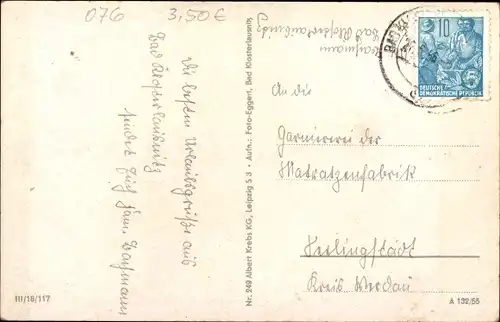 076 3,50€
Die besten Urlaubsgrüße aus
Bad Klosterlausnitz
sendet Euch Fam. Baßmann
Baßmann
Bad Klosterlausnitz
BAD KL
10
DEUTSCHE
DEMOKRATISCHE REPUBLIK
An die
Garniererei der
Matratzenfabrik
Seelingstädt
Kreis Werdau
Nr. 249 Albert Krebs KG, Leipzig S 3 • Aufn.: Foto-Eggert, Bad Klosterlausnitz
III/18/117
A 132/55